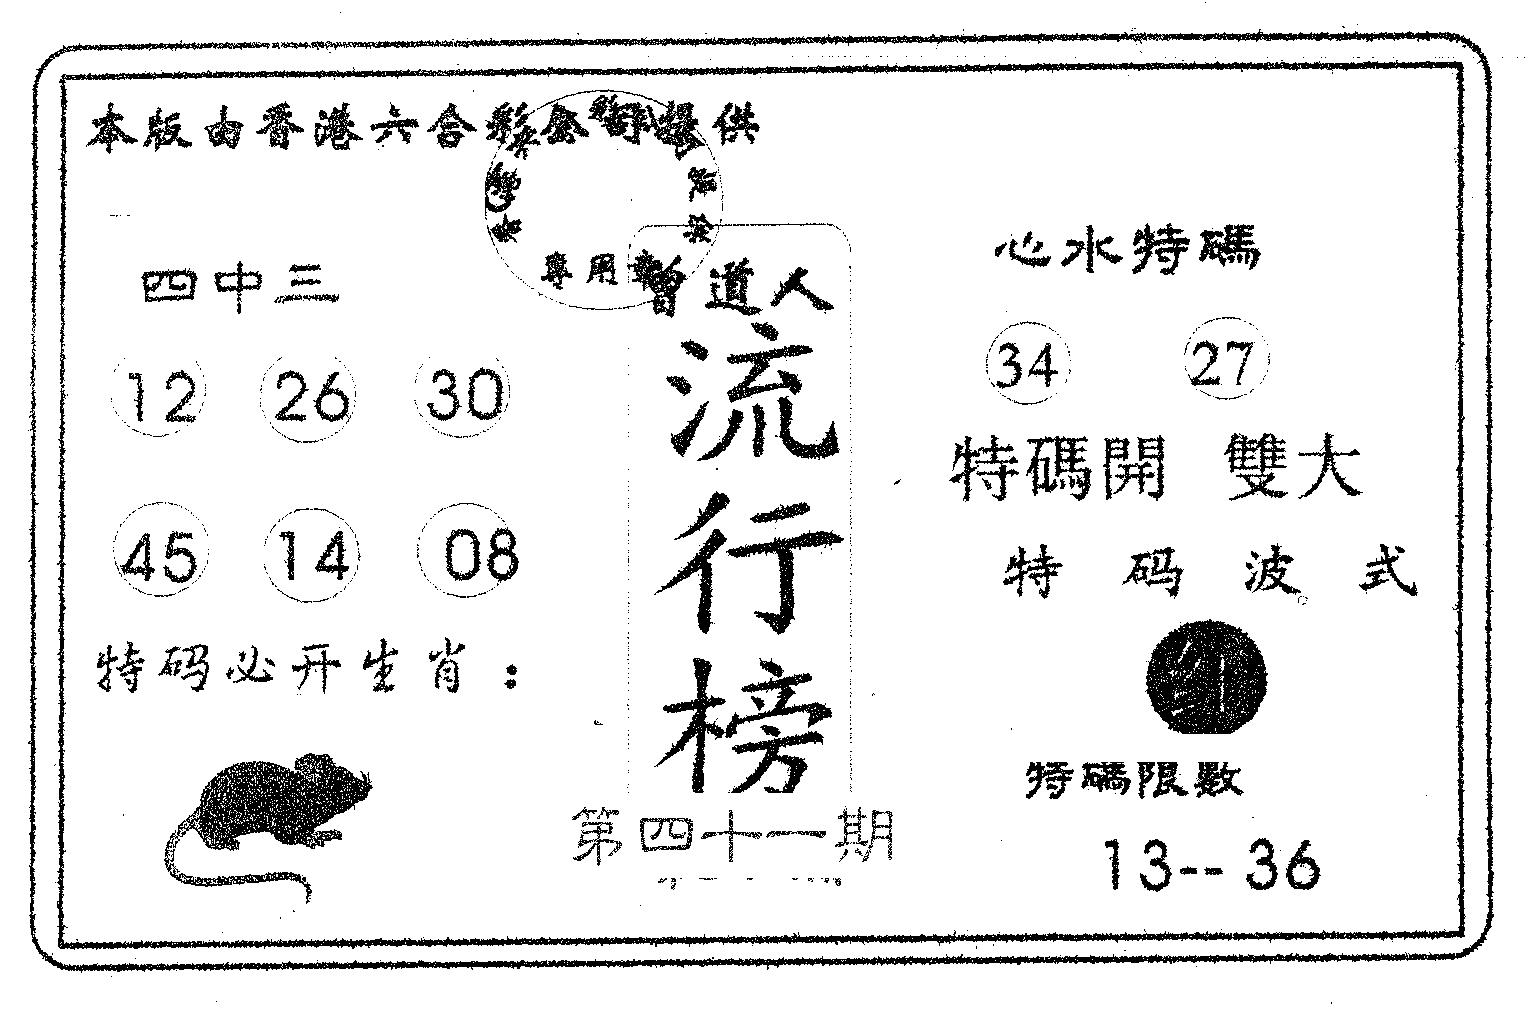 本版由香港六合彩公司提供
專用章
四中三
12 26 30
45 14 08
特码必开生肖：
曾道人
流行榜
第四十一期
心水特碼
34 27
特碼開 雙大
特码波式
红
特碼限數
13-- 36